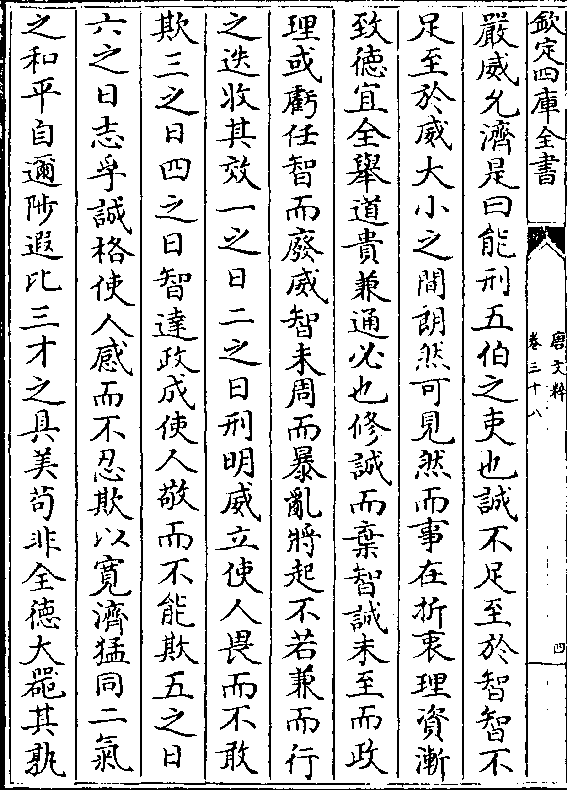 欽定四庫全書
唐文粹
卷三十八
四
嚴威允濟是曰能刑五伯之吏也誠不足至於智智不
足至於威大小之間朗然可見然而事在折衷理資漸
致德宜全舉道貴兼通必也修誠而棄智誠未至而政
理或虧任智而廢威智未周而暴亂將起不若兼而行
之迭收其效一之日二之日刑明威立使人畏而不敢
欺三之日四之日智達政成使人敬而不能欺五之日
六之日志孚誠格使人感而不忍欺以寬濟猛同二氣
之和平自邇陟遐比三才之具美苟非全德大器其孰